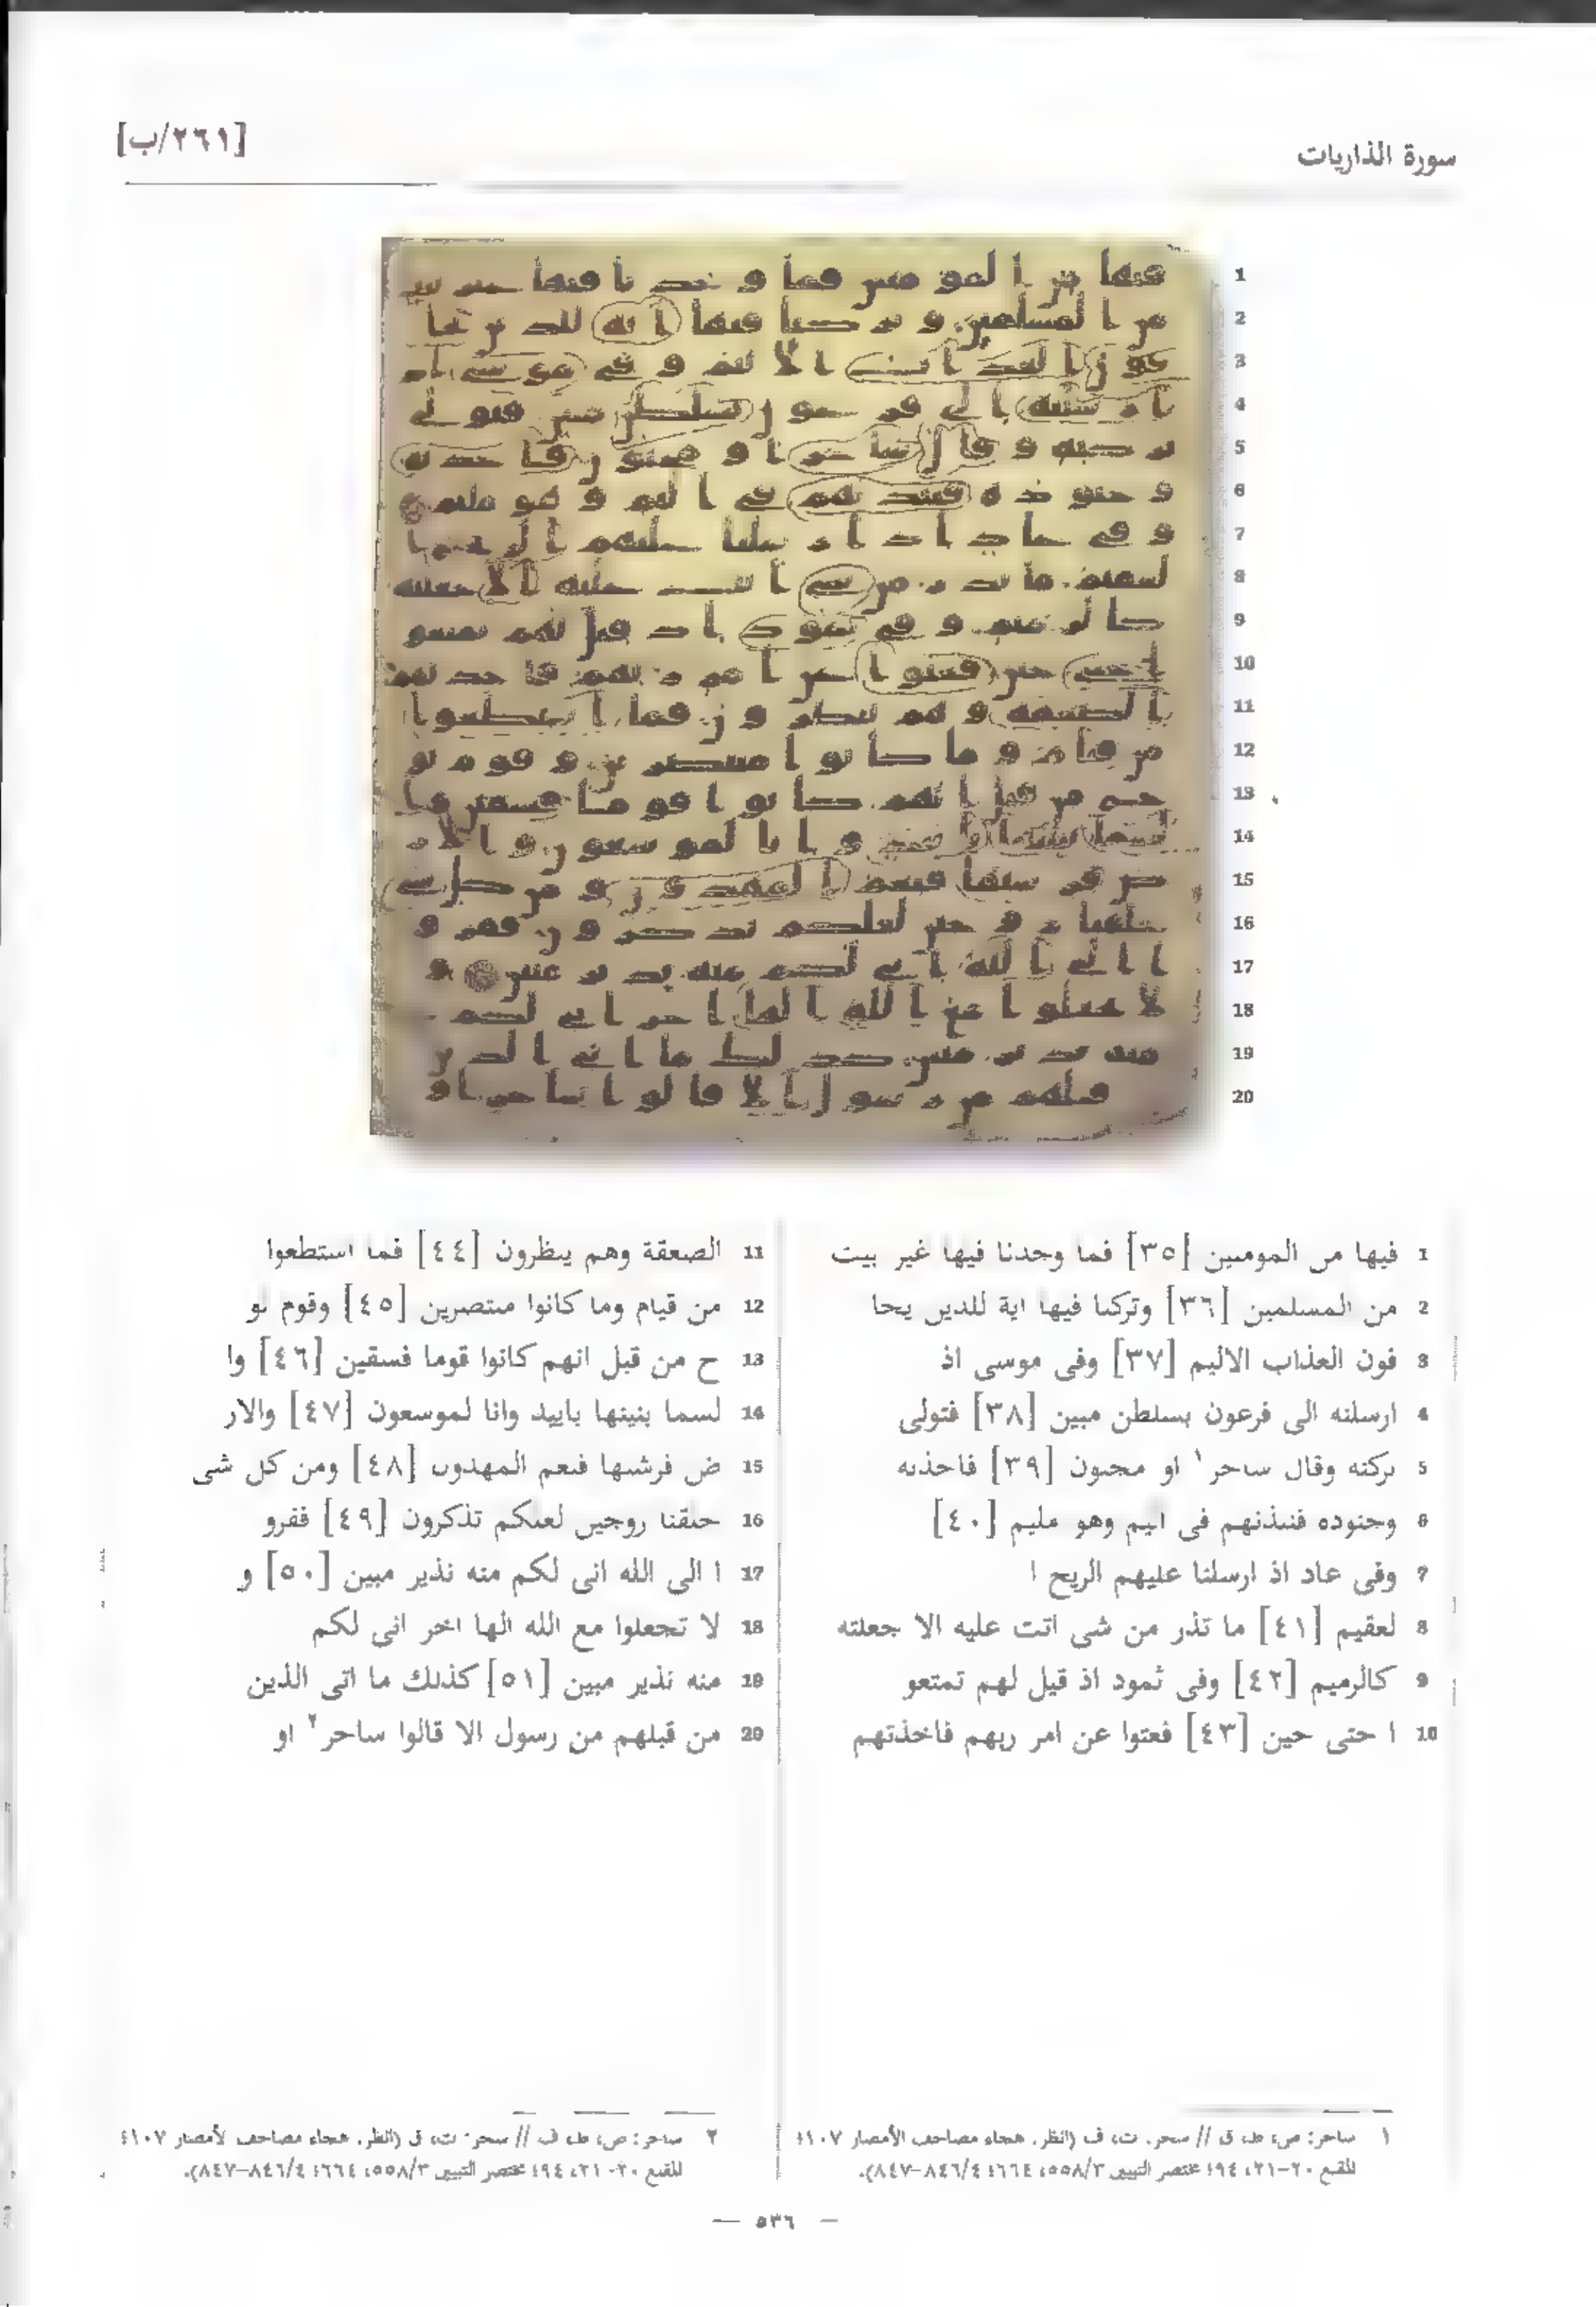 سورة الذاريات
[٢٦١/ب]
1
2
3
4
5
6
7
8
9
10
11
12
13
14
15
16
17
18
19
20
1 فيها من المومنين [٣٥] فما وجدنا فيها غير بيت
2 من المسلمين [٣٦] وتركنا فيها اية للذين يخا
3 فون العذاب الاليم [٣٧] وفى موسى اذ
4 ارسلنه الى فرعون بسلطن مبين [٣٨] فتولى
5 بركنه وقال ساحر١ او مجنون [٣٩] فاخذنه
6 وجنوده فنبذنهم فى اليم وهو مليم [٤٠]
7 وفى عاد اذ ارسلنا عليهم الريح ا
8 لعقيم [٤١] ما تذر من شى اتت عليه الا جعلته
9 كالرميم [٤٢] وفى ثمود اذ قيل لهم تمتعو
10 ا حتى حين [٤٣] فعتوا عن امر ربهم فاخذتهم
11 الصعقة وهم ينظرون [٤٤] فما استطعوا
12 من قيام وما كانوا منتصرين [٤٥] وقوم نو
13 ح من قبل انهم كانوا قوما فسقين [٤٦] وا
14 لسما بنينها باييد وانا لموسعون [٤٧] والار
15 ض فرشنها فنعم المهدون [٤٨] ومن كل شى
16 خلقنا زوجين لعلكم تذكرون [٤٩] ففرو
17 ا الى الله انى لكم منه نذير مبين [٥٠] و
18 لا تجعلوا مع الله الها اخر انى لكم
19 منه نذير مبين [٥١] كذلك ما اتى الذين
20 من قبلهم من رسول الا قالوا ساحر٢ او
١ ساحر: ص، ط، ق // سحر: ت، ف (انظر: هجاء مصاحف الأمصار ١٠٧؛
المقنع ٢٠-٢١، ٩٤؛ مختصر التبيين ٥٥٨/٣، ٦٦٤؛ ٨٤٦/٤-٨٤٧).
٢ ساحر: ص، ط، ف // سحر: ت، ق (انظر: هجاء مصاحف الأمصار ١٠٧؛
المقنع ٢٠-٢١، ٩٤؛ مختصر التبيين ٥٥٨/٣، ٦٦٤؛ ٨٤٦/٤-٨٤٧).
— ٥٣٦ —